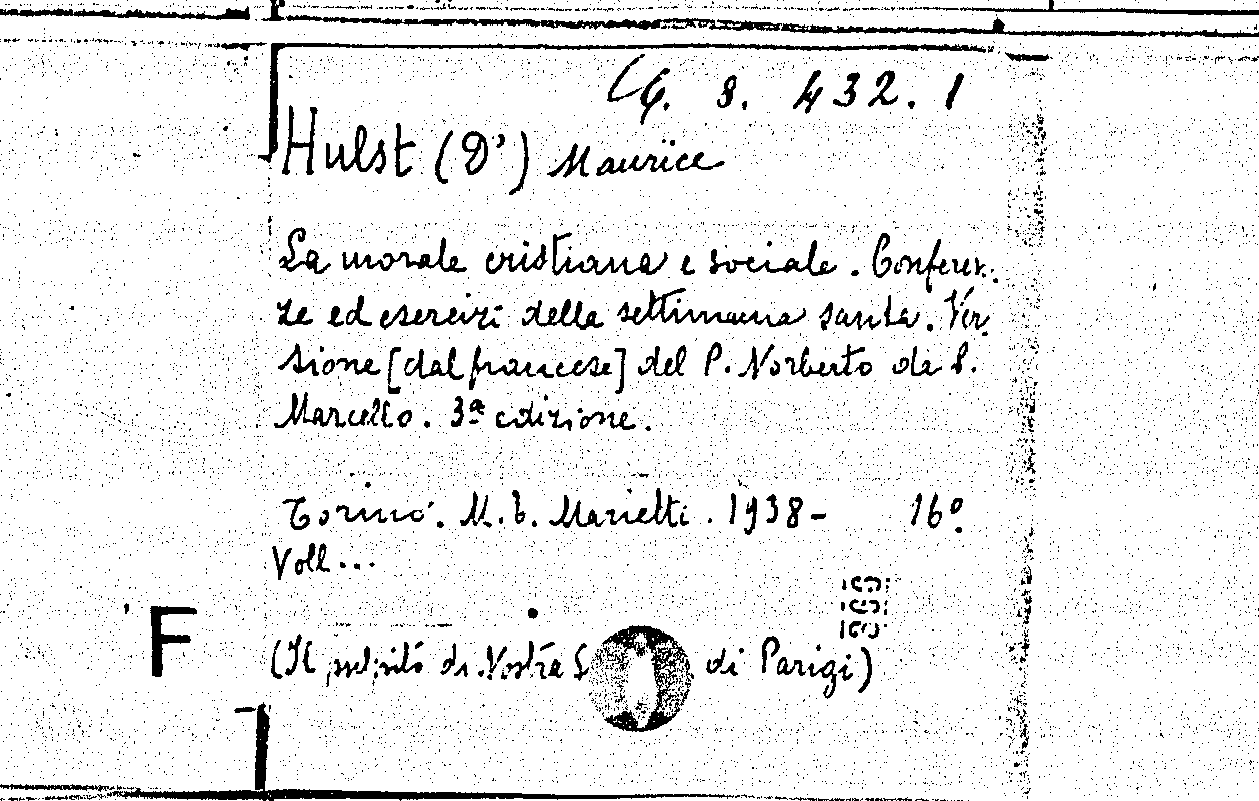 8. 432. 1
Hulst (D') Maurice
La morale cristiana e sociale. Conferen-
ze ed esercizi della settimana santa. Ver-
sione [dal francese] del P. Norberto da S.
Marcello. 3ª edizione.
Torino. M. E. Marietti. 1938- 16º.
Voll...
F
(Il pulpito di Nostra S di Parigi)